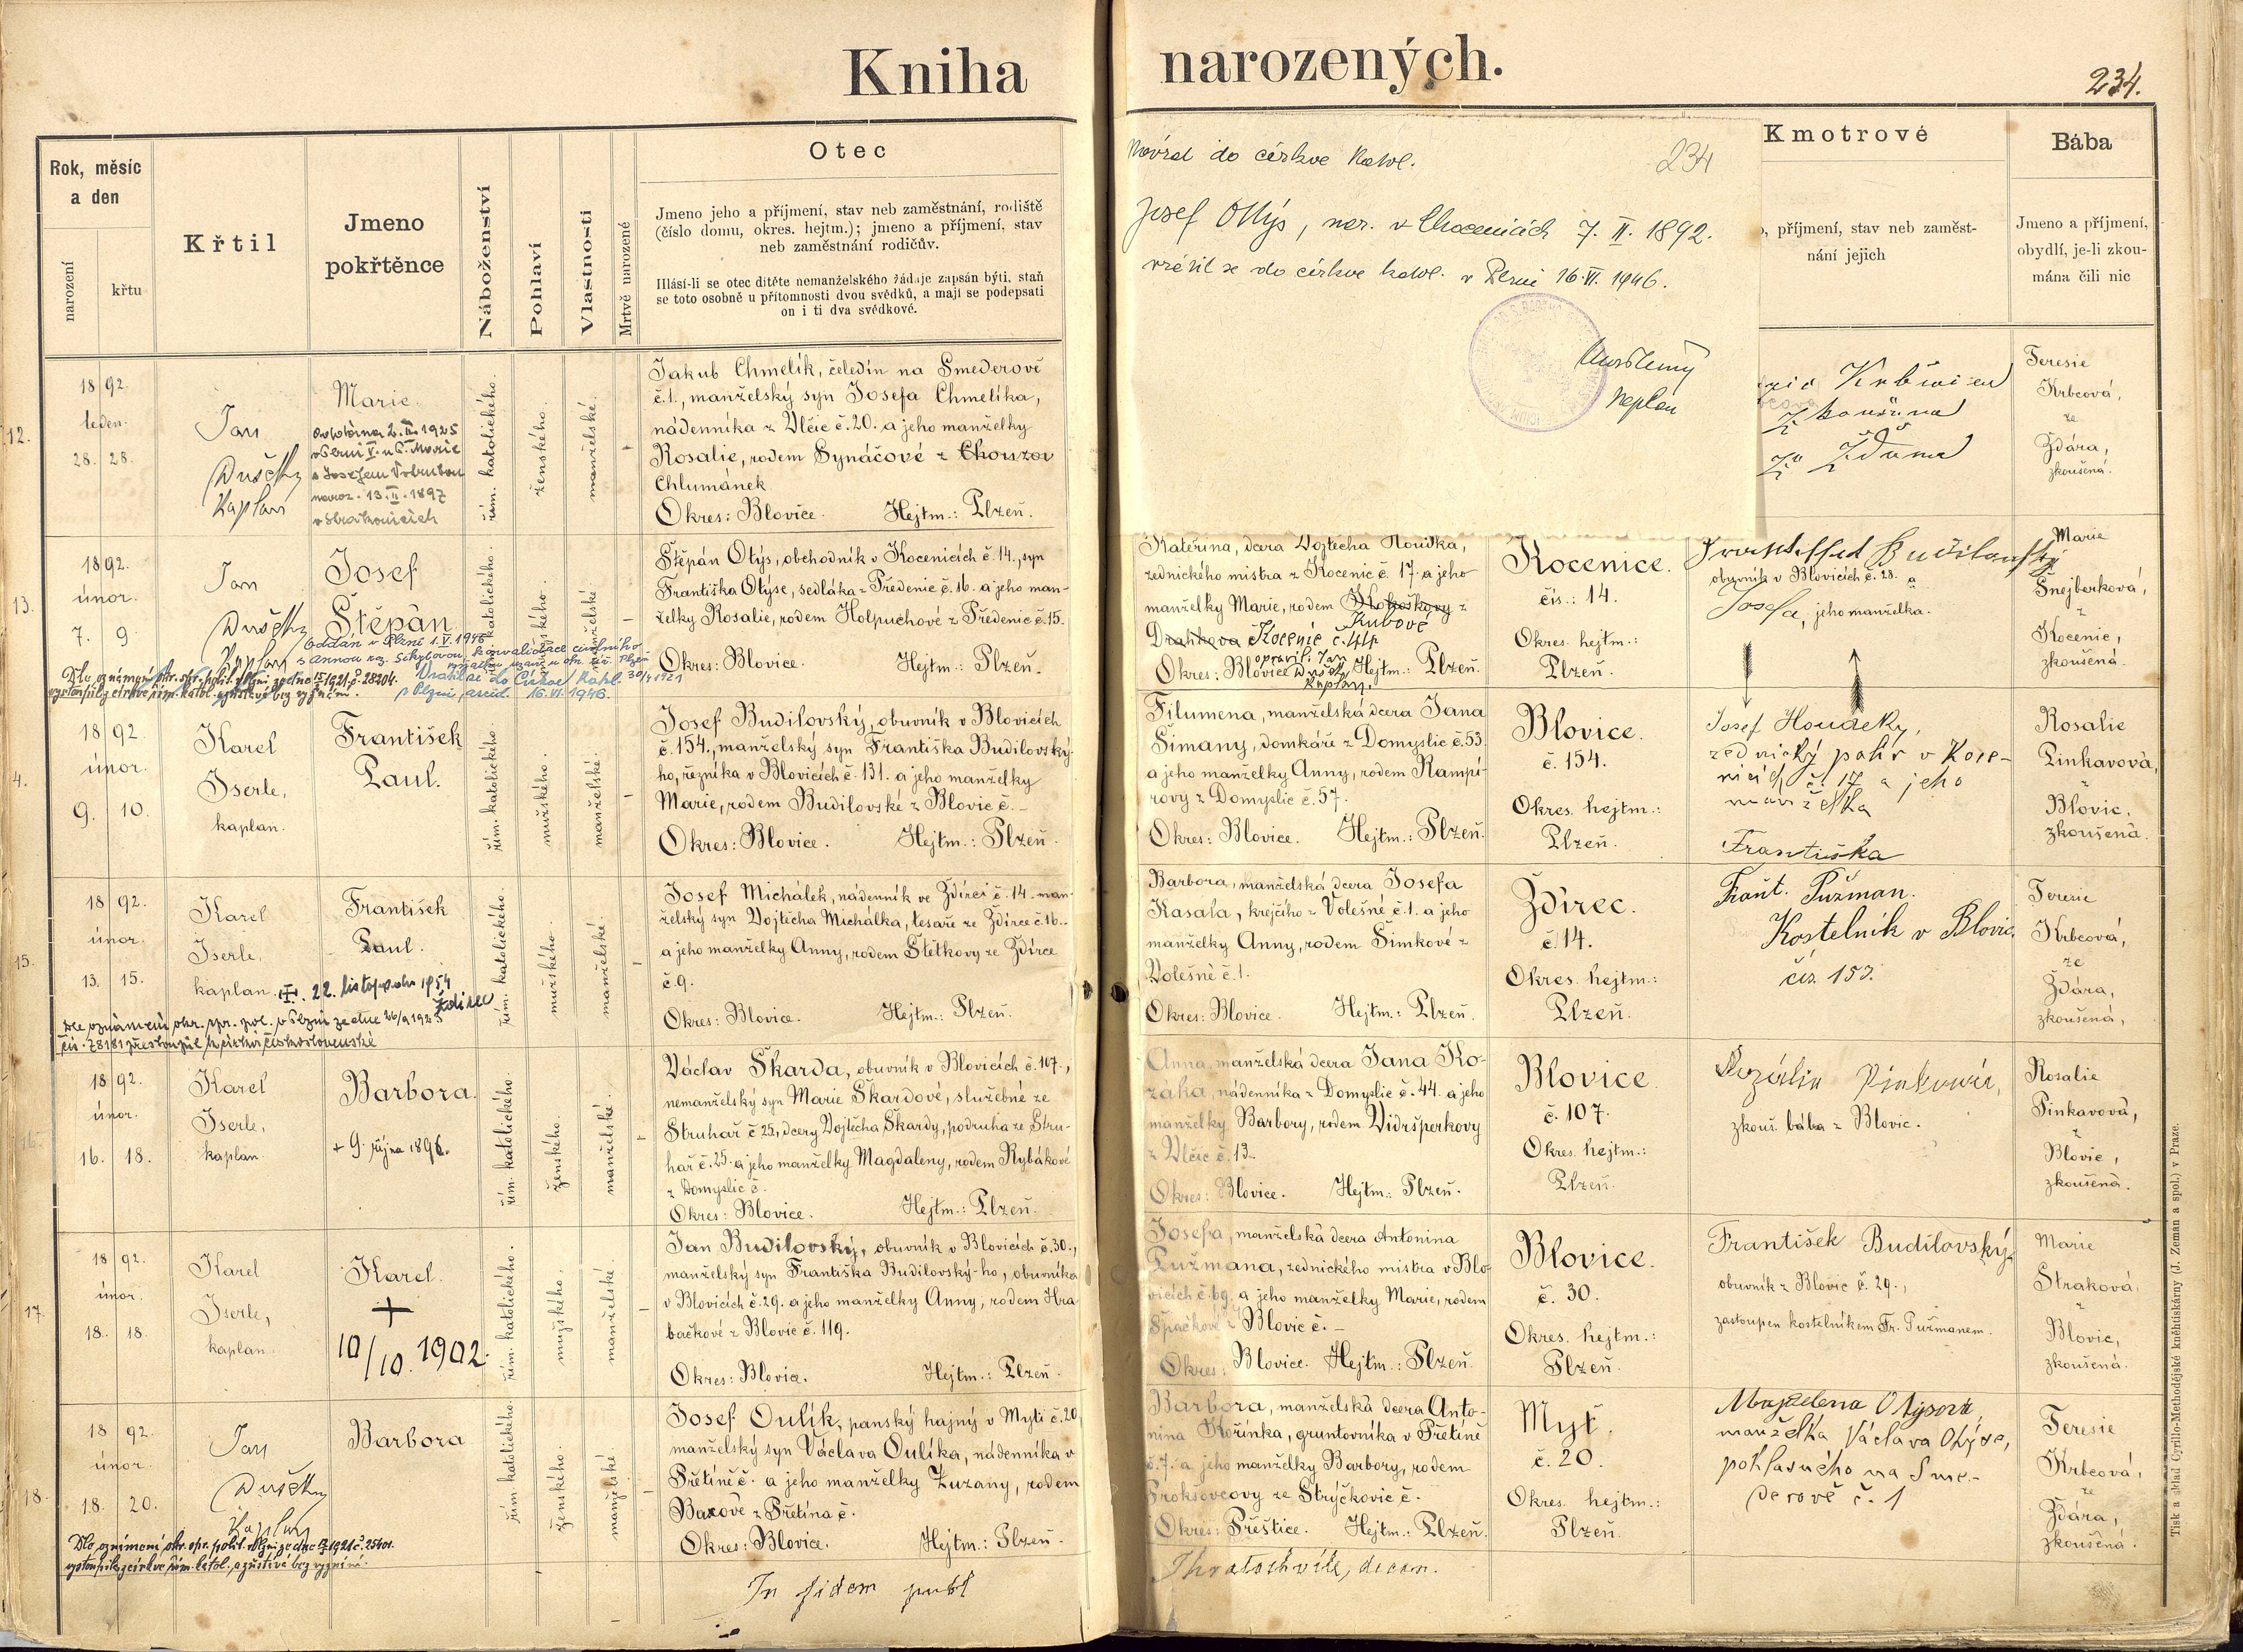 Kniha narozených.
234.
Rok, měsíc
a den
narození
křtu
Křtil
Jmeno
pokřtěnce
Náboženství
Pohlaví
Vlastnosti
Mrtvě narozené
Otec
Jmeno jeho a příjmení, stav neb zaměstnání, rodiště
(číslo domu, okres. hejtm.); jmeno a příjmení, stav
neb zaměstnání rodičův.
Hlásí-li se otec dítěte nemanželského žádaje zapsán býti, staň
se toto osobně u přítomnosti dvou svědků, a mají se podepsati
on i ti dva svědkové.
Návrat do církve katol. 234
Josef Otýs, nar. v Chocenicích 7. II. 1892.
vrátil se do církve katol. v Plzni 16. VI. 1946.
kaplan
Kmotrové
příjmení, stav neb zaměst-
nání jejich
Bába
Jmeno a příjmení,
obydlí, je-li zkou-
mána čili nic
12.
18 92.
leden.
28. 28.
Jan
Dušek
kaplan
Marie
Oddána 2. II. 1925
v Plzni
s Josefem
naroz. 13. II. 1897
v Strakonicích
řím. katolického.
ženského.
manželské.
Jakub Chmelík, čeledín na Smederově
č. 1., manželský syn Josefa Chmelíka,
nádenníka z Vlčic č. 20. a jeho manželky
Rosalie, rodem Synáčové z Chouzov
Chlumánek
Okres: Blovice. Hejtm.: Plzeň.
Teresie
Krbcová,
ze
Ždára,
zkoušená.
13.
18 92.
únor.
7. 9
Jan
Dušek
kaplan
Josef
Štěpán
řím. katolického.
mužského.
manželské.
Štěpán Otýs, obchodník v Kocenicích č. 14., syn
Františka Otýse, sedláka z Předenic č. 16. a jeho man-
želky Rosalie, rodem Holpuchové z Předenic č. 15.
Okres: Blovice. Hejtm.: Plzeň.
Oddán v Plzni 1. V. 1946
s Annou roz. konvalidace civilního
Vrátil se do Církve katol.
v Plzni 16. VI. 1946.
vystoupil z církve řím. katol. bez vyznání.
Kateřina, dcera Vojtěcha Houdka,
zednického mistra z Kocenic č. 17. a jeho
manželky Marie, rodem z
Kubové
Drahkova Kocenic č. 44
opravil: Jan
Dušek
kaplan.
Okres: Blovice Hejtm.: Plzeň.
Kocenice.
čís.: 14.
Okres. hejtm.:
Plzeň.
Budilovský
obuvník v Blovicích č. 28. a
Josefa, jeho manželka.
Marie
Šnejberková,
z
Kocenic,
zkoušená.
4.
18 92.
únor.
9. 10.
Karel
Iserle,
kaplan.
František
Paul.
řím. katolického.
mužského.
manželské.
Josef Budilovský, obuvník v Blovicích
č. 154., manželský syn Františka Budilovský-
ho, řezníka v Blovicích č. 131. a jeho manželky
Marie, rodem Budilovské z Blovic č. –
Okres: Blovice. Hejtm.: Plzeň.
Filumena, manželská dcera Jana
Šimany, domkáře z Domyslic č. 53.
a jeho manželky Anny, rodem Rampí-
rovy z Domyslic č. 57.
Okres: Blovice. Hejtm.: Plzeň.
Blovice.
č. 154.
Okres. hejtm.:
Plzeň.
Josef Houdek,
zednický polír v Koce-
nicích č. 17 a jeho
manželka
Františka
Rosalie
Pinkavová,
z
Blovic,
zkoušená.
15.
18 92.
únor.
13. 15.
Karel
Iserle,
kaplan.
František
Paul.
22. listopadu 1954
Ždírec
přestoupil k církvi československé
řím. katolického.
mužského.
manželské.
Josef Michálek, nádenník ve Ždírci č. 14. man-
želský syn Vojtěcha Michálka, tesaře ze Ždírce č. 16.
a jeho manželky Anny, rodem Štětkovy ze Ždírce
č. 9.
Okres: Blovice. Hejtm.: Plzeň.
Barbora, manželská dcera Josefa
Kasala, krejčího z Volešné č. 1. a jeho
manželky Anny, rodem Šimkové z
Volešné č. 1.
Okres: Blovice. Hejtm.: Plzeň.
Ždírec.
č. 14.
Okres. hejtm.:
Plzeň.
Frant. Pužman.
Kostelník v Blovic.
čís. 153.
Teresie
Krbcová,
ze
Ždára,
zkoušená,
16.
18 92.
únor.
16. 18.
Karel
Iserle,
kaplan.
Barbora.
+ 9. října 1896.
řím. katolického.
ženského.
manželské.
Václav Škarda, obuvník v Blovicích č. 107.,
nemanželský syn Marie Škardové, služebné ze
Struhař č 25., dcery Vojtěcha Škardy, podruha ze Stru-
hař č. 25. a jeho manželky Magdaleny, rodem Rybákové
z Domyslic č.
Okres: Blovice. Hejtm.: Plzeň.
Anna, manželská dcera Jana Ko-
záka, nádenníka z Domyslic č. 44. a jeho
manželky Barbory, rodem Vidršperkovy
z Vlčic č. 13.
Okres: Blovice. Hejtm.: Plzeň.
Blovice.
č. 107.
Okres. hejtm.:
Plzeň.
zkouš. bába z Blovic.
Rosalie
Pinkavová,
z
Blovic,
zkoušená.
17.
18 92.
únor.
18. 18.
Karel
Iserle,
kaplan.
Karel.
+
10/10. 1902.
řím. katolického.
mužského.
manželské.
Jan Budilovský, obuvník v Blovicích č. 30.,
manželský syn Františka Budilovský-ho, obuvníka
v Blovicích č. 29. a jeho manželky Anny, rodem Hra-
bačkové z Blovic č. 119.
Okres: Blovice. Hejtm.: Plzeň.
Josefa, manželská dcera Antonina
Pužmana, zednického mistra v Blo-
vicích č. 69. a jeho manželky Marie, rodem
Špačkové z Blovic č. –
Okres: Blovice. Hejtm.: Plzeň.
Blovice.
č. 30.
Okres. hejtm.:
Plzeň.
František Budilovský,
obuvník z Blovic č. 29.,
zastoupen kostelníkem Fr. Pužmanem.
Marie
Straková,
z
Blovic,
zkoušená.
18.
18 92.
únor.
18. 20.
Jan
Dušek
kaplan
Barbora
vystoupila z církve řím. katol. a zůstává bez vyznání.
řím. katolického.
ženského.
manželské.
Josef Oulík, panský hajný v Mytí č. 20,
manželský syn Václava Oulíka, nádenníka v
Přetíně č. a jeho manželky Zuzany, rodem
Baxové z Přetína č.
Okres: Blovice. Hejtm.: Plzeň.
Barbora, manželská dcera Anto-
nina Kořínka, gruntovníka v Přetíně
č. 7. a jeho manželky Barbory, rodem
Prokšovcovy ze Strýčkovic č.
Okres: Přeštice. Hejtm.: Plzeň.
Myť.
č. 20.
Okres. hejtm.:
Plzeň.
Magdelena Otýsová
manželka Václava Otýse,
na Sme-
derově č. 1
Teresie
Krbcová,
ze
Ždára,
zkoušená.
In fidem publ
decan.
Tisk a sklad Cyrillo-Methodějské knihtiskárny (J. Zeman a spol.) v Praze.